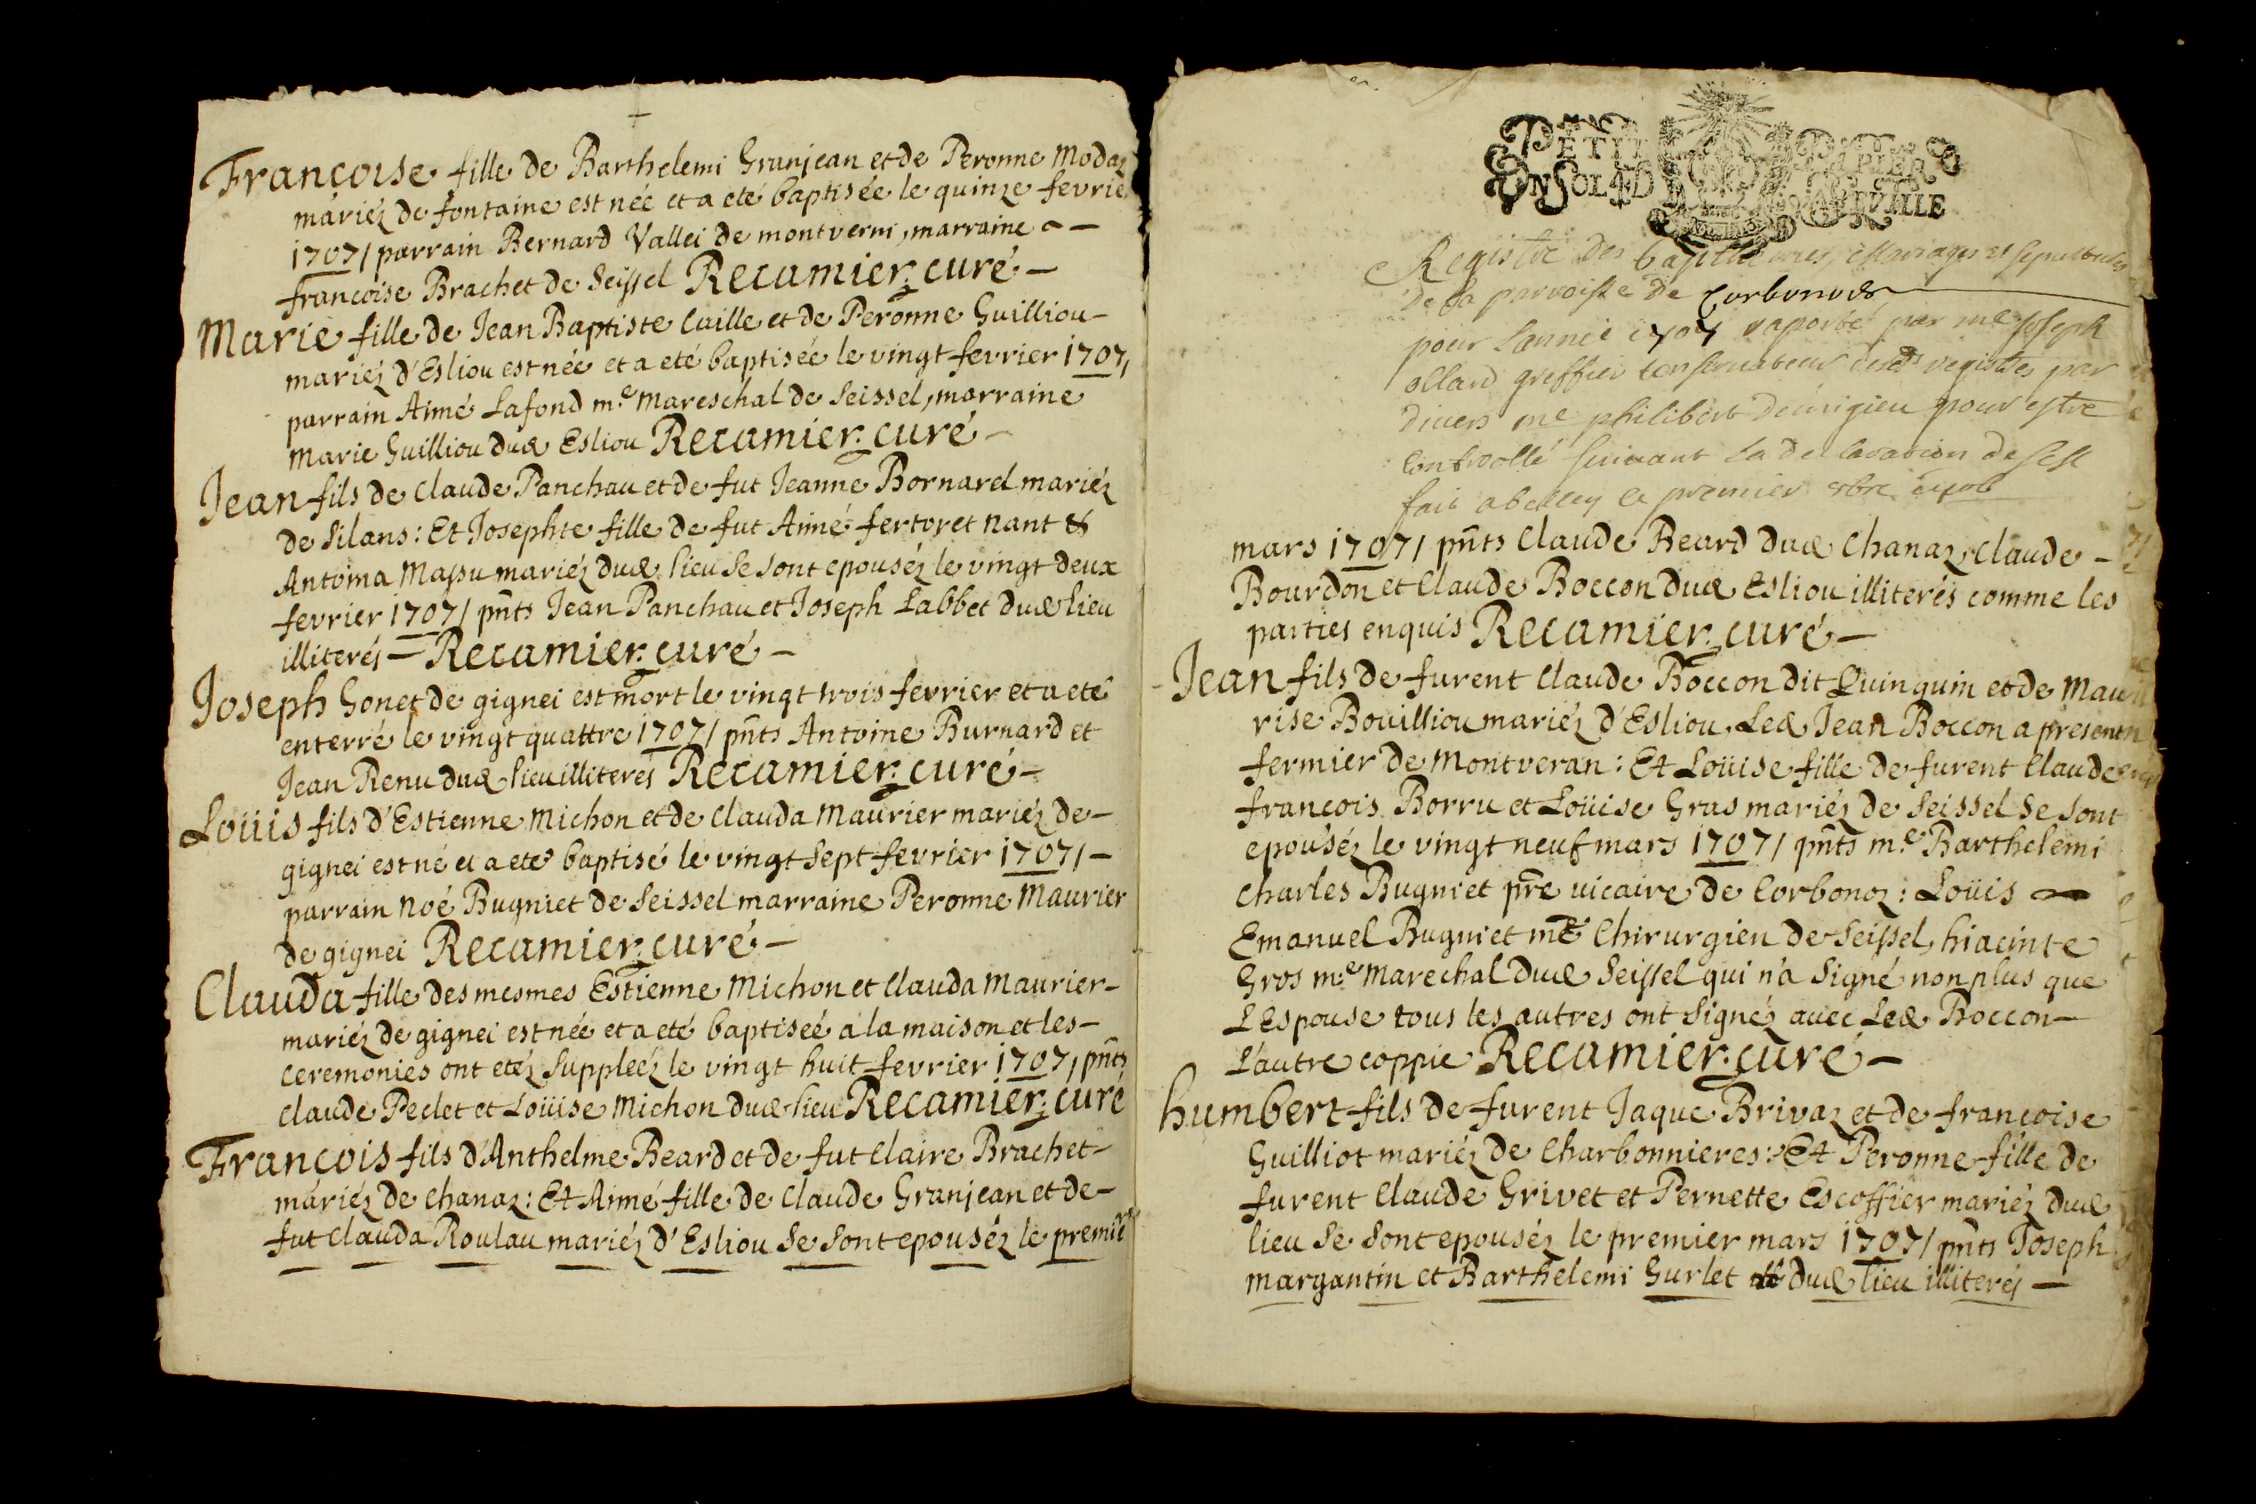 Françoise fille de Barthelemi Granjean et de Peronne Modaz
mariéz de fontaine est née et a eté baptisée le quinze fevrie
1707/ parrain Bernard Vallei de montverni, marraine
francoise Brachet de Seissel Recamier curé
Marie fille de Jean Baptiste Caille et de Peronne Guilliou
mariéz d'Esliou est née et a eté baptisée le vingt fevrier 1707,
parrain Aimé Lafond m.e Mareschal de Seissel, marraine
Marie Guilliou dud Esliou Recamier curé
Jean fils de Claude Panchau et de fut Jeanne Bornarel mariéz
de Silans: Et Josephte fille de fut Aimé fertoret nant &
Antoina Massu mariéz dud lieu se sont epouséz le vingt deux
fevrier 1707/ pnts Jean Panchau et Joseph Labbet dud lieu
illiterés Recamier curé
Joseph Gonet de gignei est mort le vingt trois fevrier et a eté
enterré le vingt quattre 1707/ pnts Antoine Burnard et
Jean Renu dud lieu illiterés Recamier curé
Loüis fils d'Estienne Michon et de Clauda Maurier mariéz de
gignei est né et a eté baptisé le vingt sept fevrier 1707/
parrain Noé Bugniet de Seissel marraine Peronne Maurier
de gignei Recamier curé
Clauda fille des mesmes Estienne Michon et Clauda Maurier
mariéz de gignei est née et a eté baptiseé a la maison et les
ceremonies ont etéz suppleéz le vingt huit fevrier 1707, pnts
Claude Peclet et Loüise Michon dud lieu Recamier curé
François fils d'Anthelme Beard et de fut Claire Brachet
mariéz de Chanaz: Et Aimé fille de Claude Granjean et de
fut Clauda Roulau mariéz d'Esliou se sont epouséz le premier
PETIT PAPIER
UN SOL 4 D LA FEVILLE
Registre des baptistaires, Mariages et sepultures
de la parroisse de Corbonod
pour Lannée 1707 raporté par me Joseph
ollard greffier conservateur desd registres par
divers me philibert demigieu pour estre
controllé suivant La declaration de sesd
fait a belley ce premier xbre
mars 1707/ pnts Claude Beard dud Chanaz, Claude
Bourdon et Claude Boccon dud Esliou illiterés comme les
parties enquis Recamier curé
Jean fils de furent Claude Boccon dit Quinquin et de Mau
rise Bouilliou mariéz d'Esliou, Led Jean Boccon a present
fermier de Montveran: Et Loüise fille de furent Claude
francois Borru et Loüise Gras mariéz de Seissel se sont
epouséz le vingt neuf mars 1707/ pnts m.e Barthelemi
Charles Bugniet pre vicaire de Corbonoz: Loüis
Emanuel Bugniet me Chirurgien de Seissel, hiacinte
Gros m.e Marechal dud Seissel qui n'a signé non plus que
L'Espouse tous les autres ont signéz avec Led Boccon
L'autre coppie Recamier curé
humbert fils de furent Jaque Brivaz et de francoise
Guilliot mariéz de Charbonnieres: Et Peronne fille de
furent Claude Grivet et Pernette Escoffier mariéz dud
lieu se sont epouséz le premier mars 1707/ pnts Joseph
margantin et Barthelemi Gurlet dud lieu illiterés